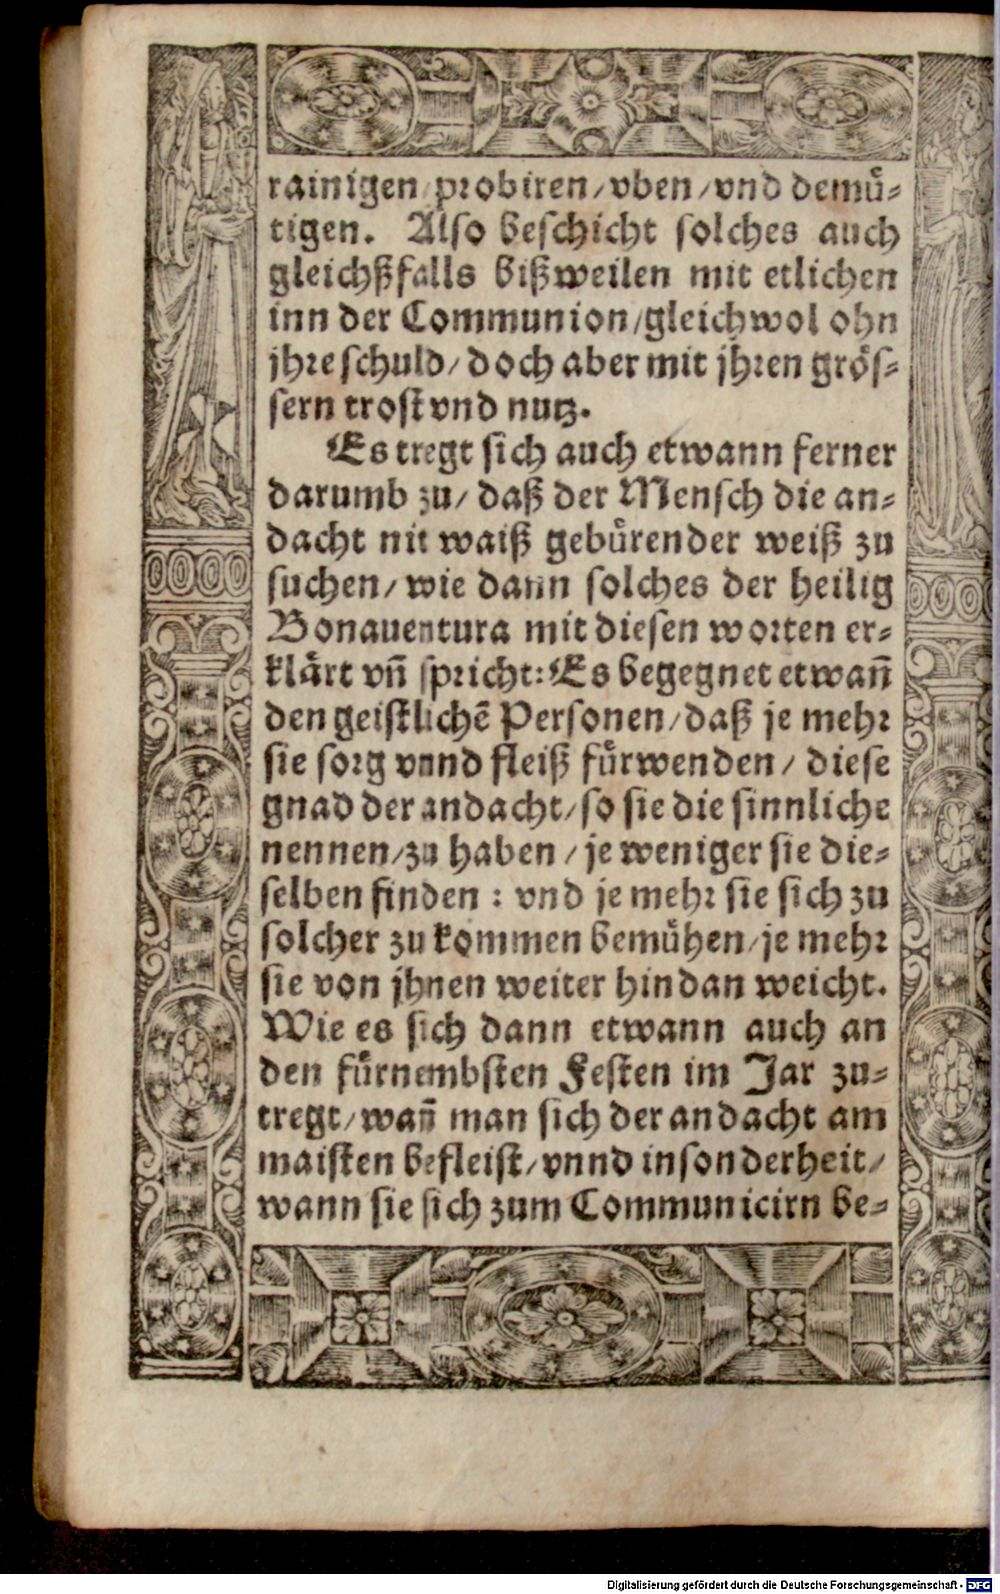 rainigen probiren/vben/vnd demuͤ⸗
tigen. Also beschicht solches auch
gleichßfalls bißweilen mit etlichen
inn der Communion/gleichwol ohn
jhre schuld/doch aber mit jhren groͤs⸗
sern trost vnd nutz.
Es tregt sich auch etwann ferner
darumb zu/ daß der Mensch die an⸗
dacht nit waiß gebuͤrender weiß zu
suchen/wie dann solches der heilig
Bonauentura mit diesen worten er⸗
klaͤrt vñ spricht: Es begegnet etwañ
den geistlichẽ Personen/daß je mehr
sie sorg vnnd fleiß fuͤrwenden/ diese
gnad der andacht/so sie die sinnliche
nennen/zu haben/je weniger sie die⸗
selben finden: vnd je mehr sie sich zu
solcher zu kommen bemuͤhen/je mehr
sie von jhnen weiter hindan weicht.
Wie es sich dann etwann auch an
den fuͤrnembsten Festen im Jar zu⸗
tregt/wañ man sich der andacht am
maisten befleist/vnnd insonderheit/
wann sie sich zum Communicirn be⸗
Digitalisierung gefördert durch die Deutsche Forschungsgemeinschaft - DFG